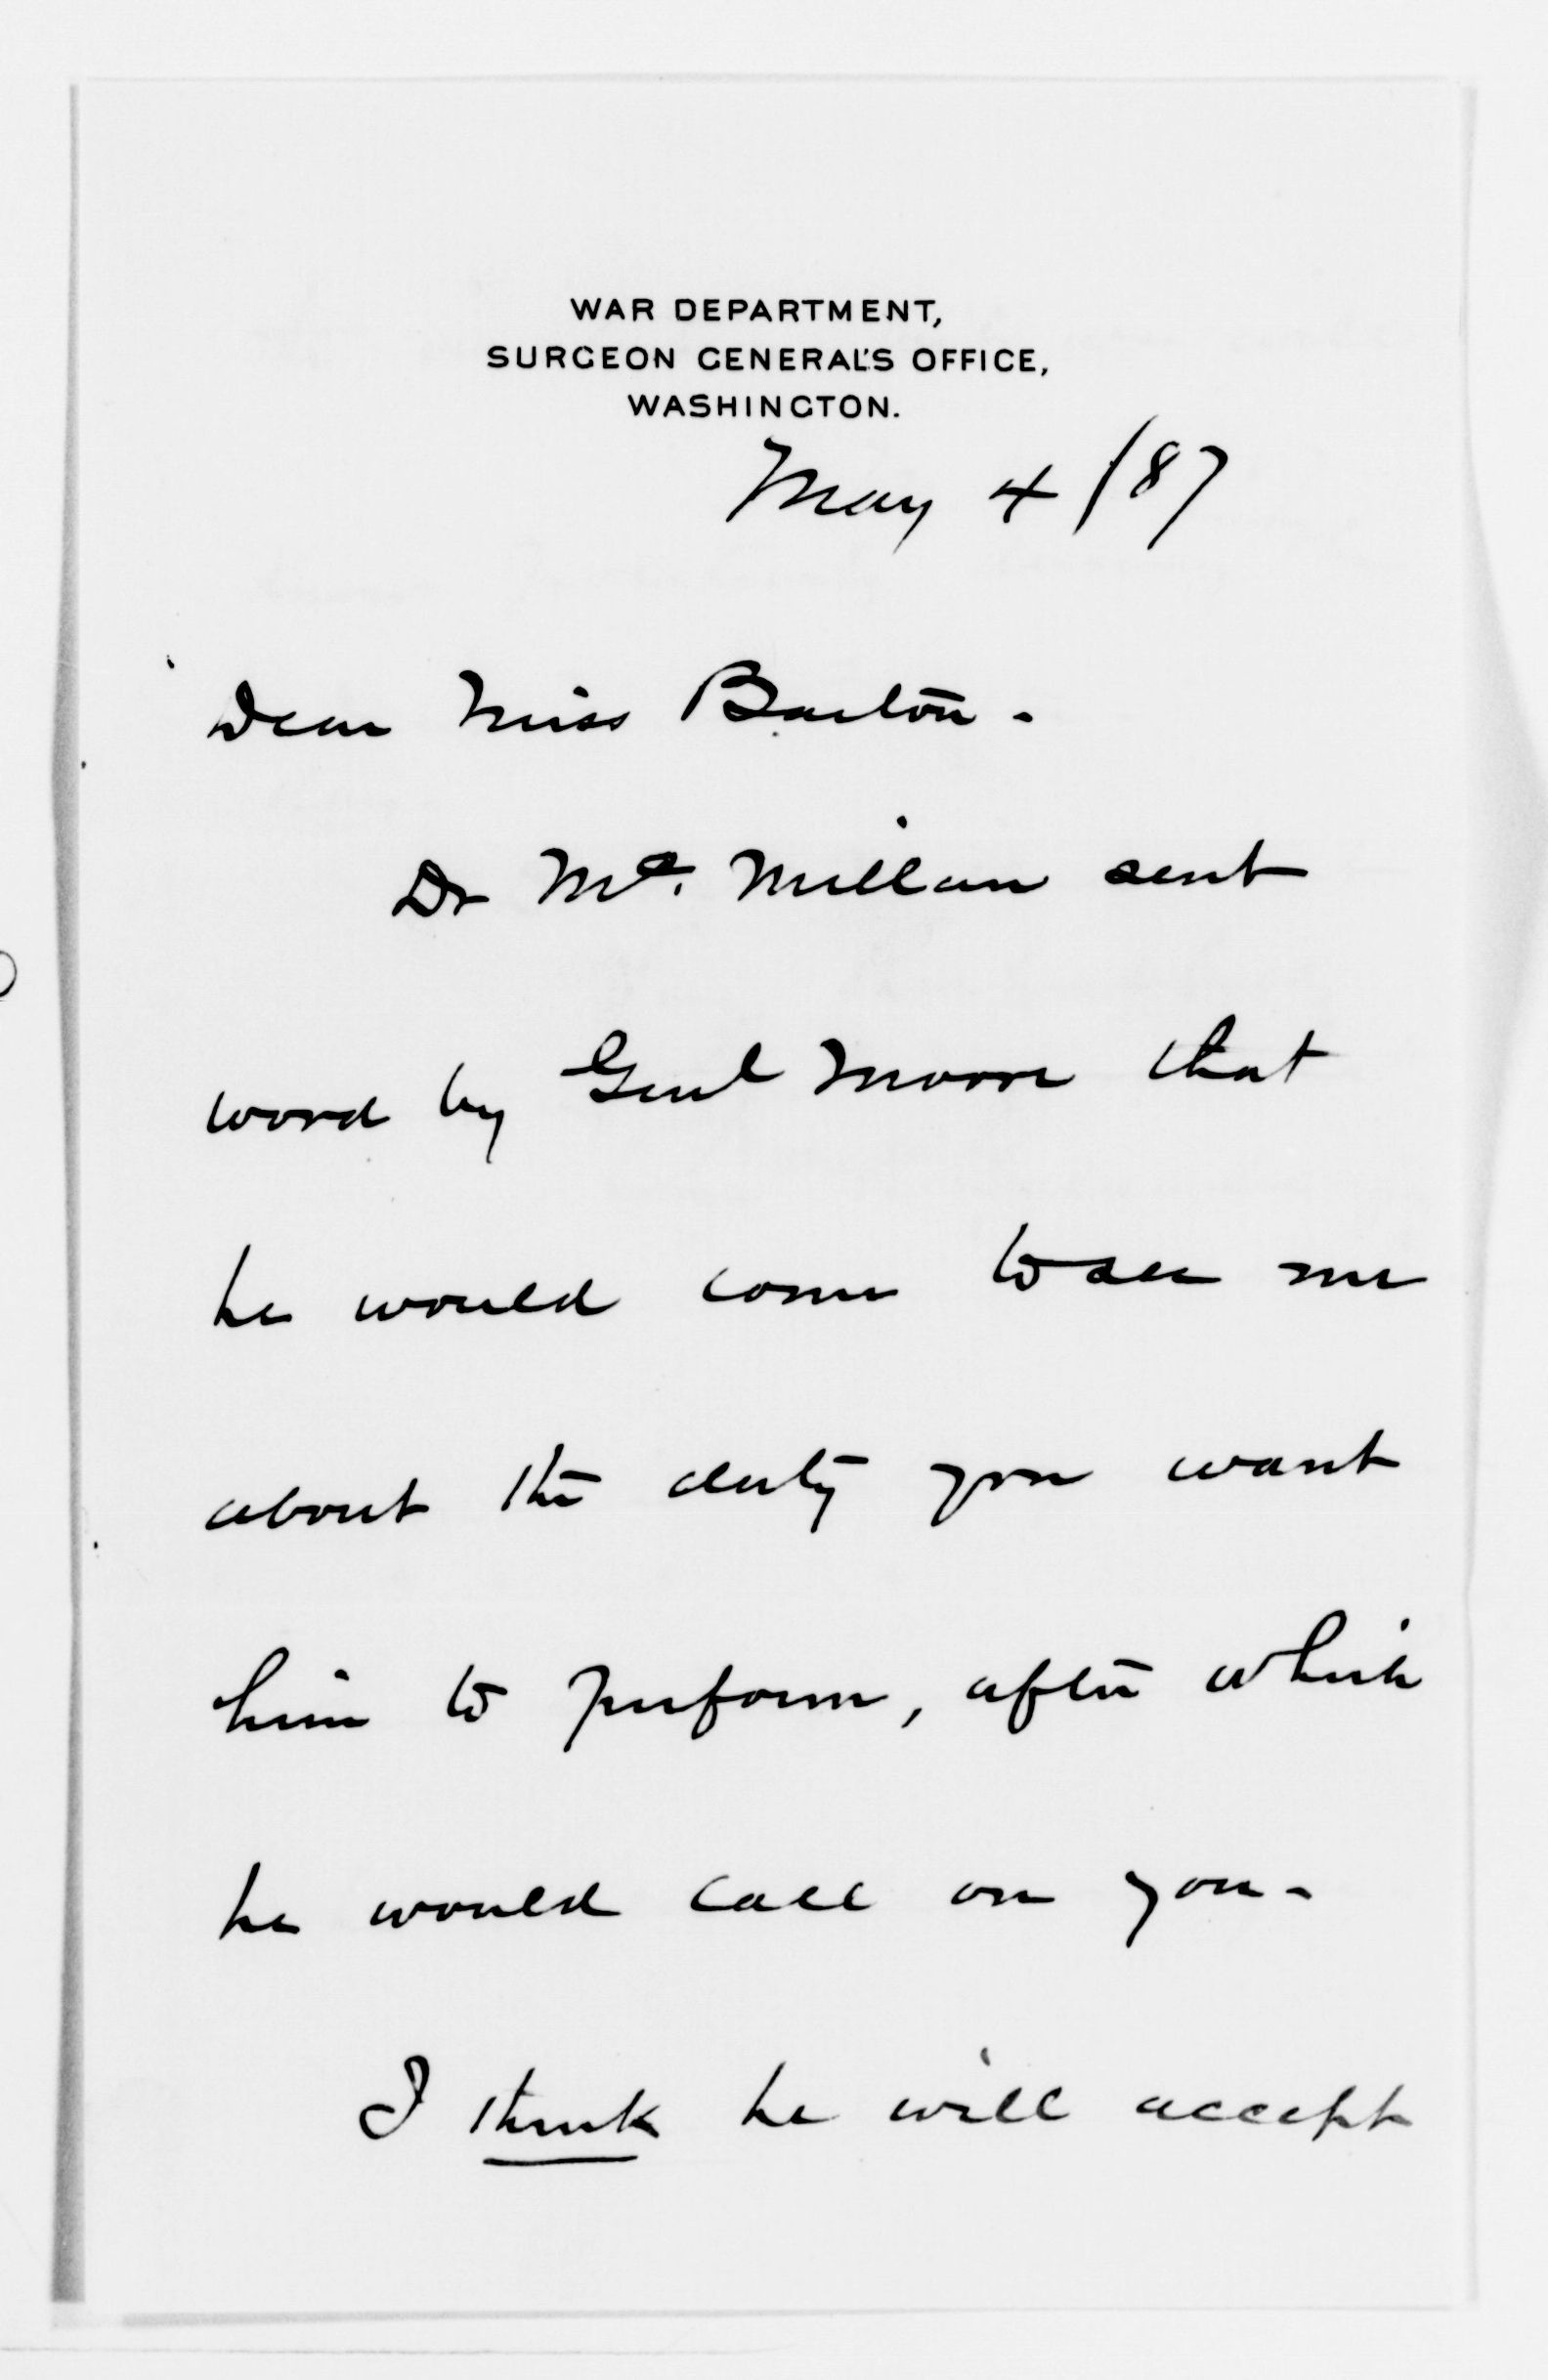 WAR DEPARTMENT,
SURGEON GENERAL'S OFFICE,
WASHINGTON.
May 4/87
Dear Miss Barton.
Dr Mc. Millan sent
word by Genl Moore that
he would come to see me
about the duty you want
him to perform, after which
he would call on you.
I think he will accept